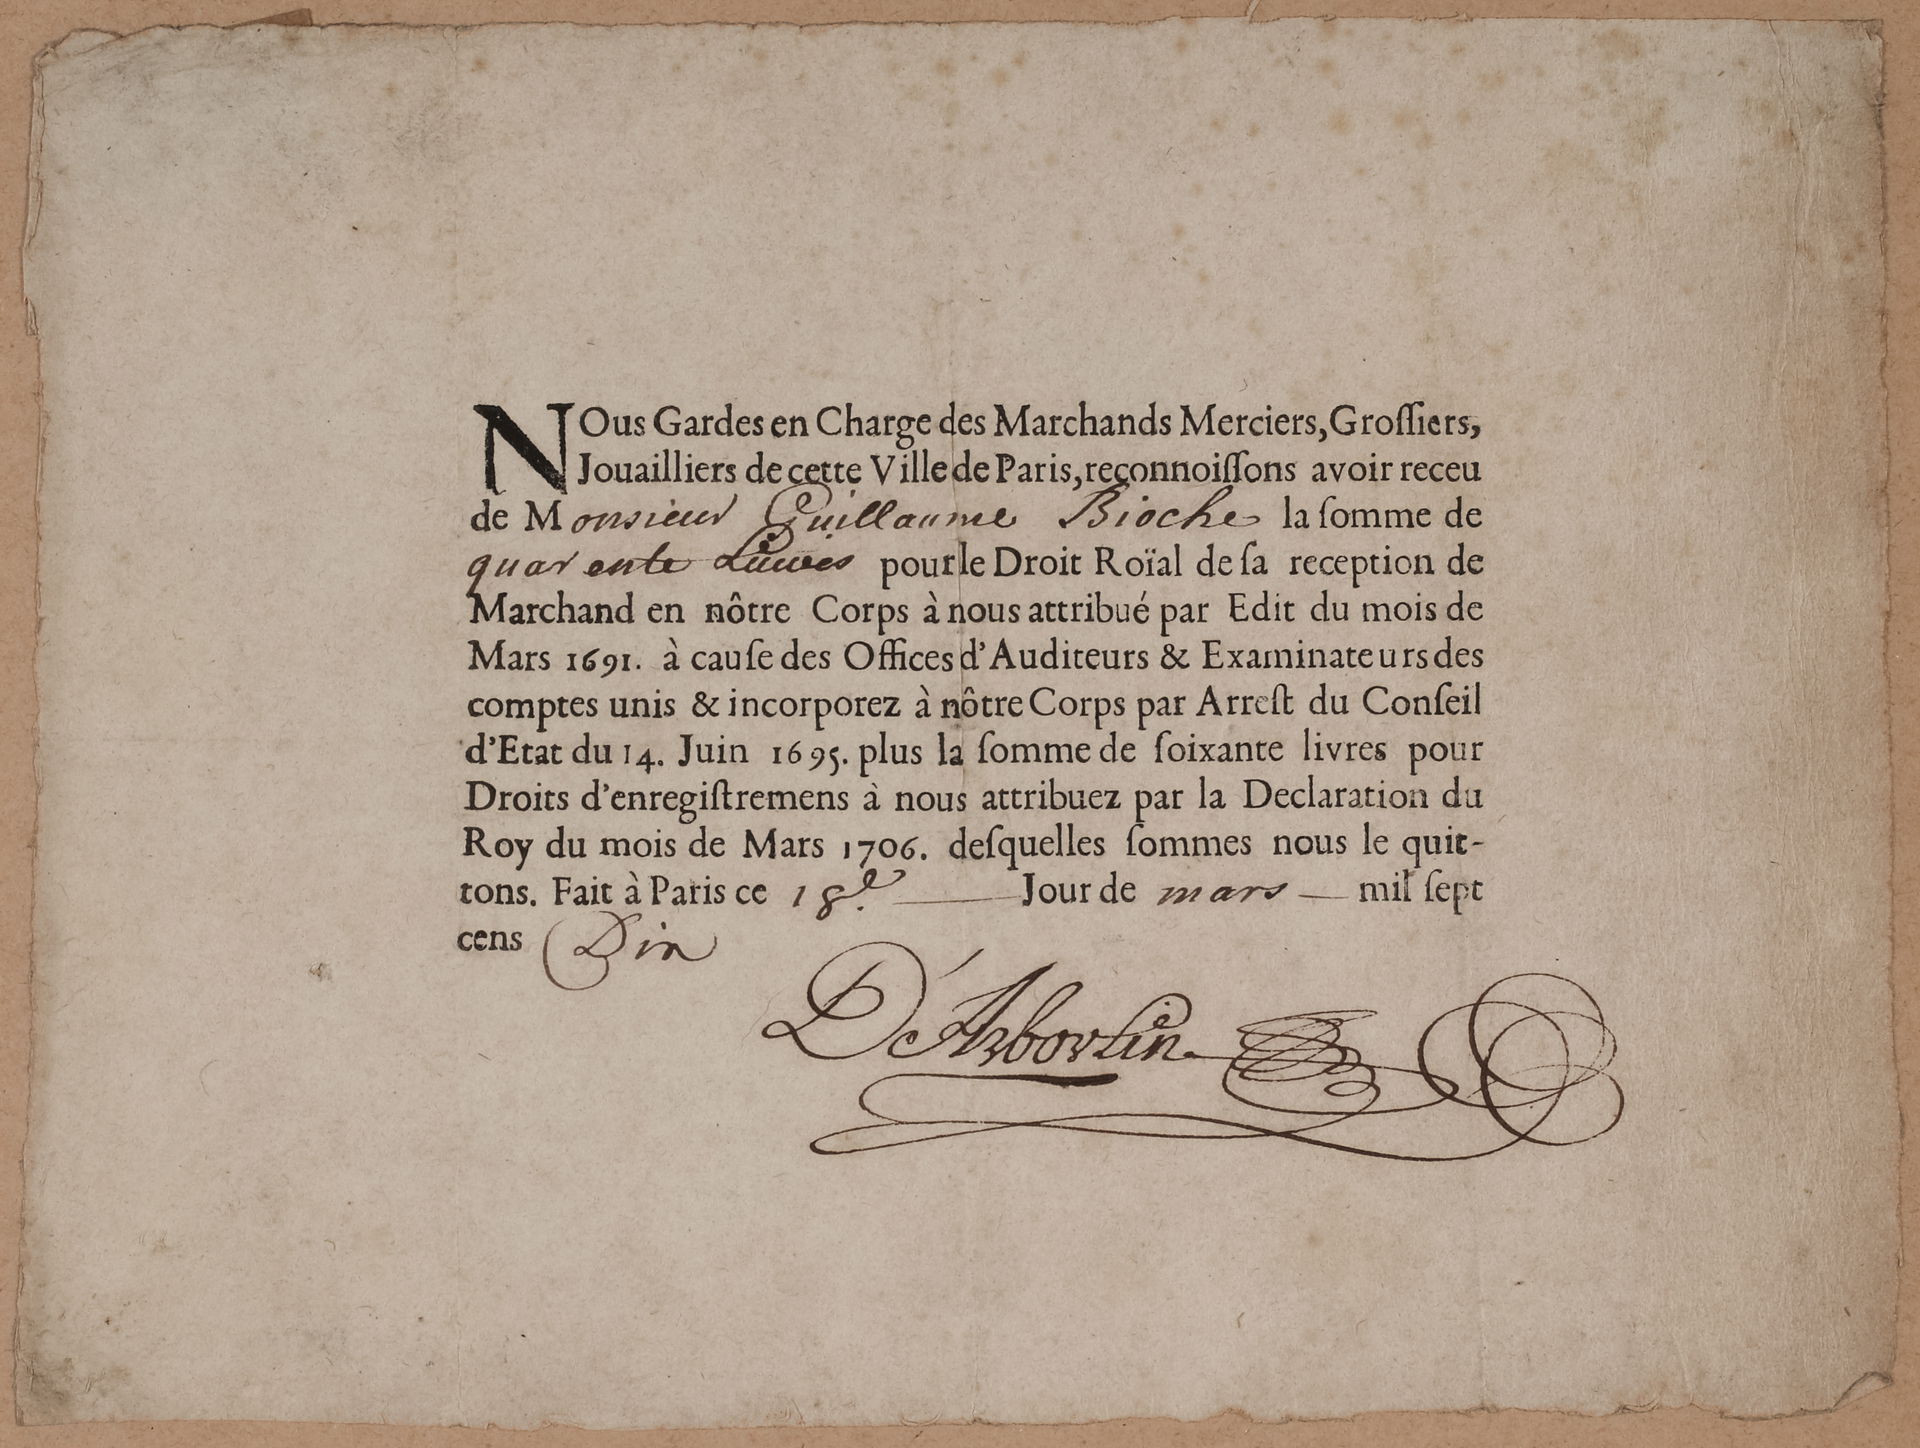 NOus Gardes en Charge des Marchands Merciers, Groſſiers,
Jouailliers de cette Ville de Paris, reconnoiſſons avoir receu
de Monsieur Guillaume Bioche la ſomme de
quarente Liures pour le Droit Roïal de ſa reception de
Marchand en nôtre Corps à nous attribué par Edit du mois de
Mars 1691. à cauſe des Offices d'Auditeurs & Examinateurs des
comptes unis & incorporez à nôtre Corps par Arreſt du Conſeil
d'Etat du 14. Juin 1695. plus la ſomme de ſoixante livres pour
Droits d'enregiſtremens à nous attribuez par la Declaration du
Roy du mois de Mars 1706. deſquelles ſommes nous le quit-
tons. Fait à Paris ce 18e. Jour de mars mil ſept
cens Dix
D'Arbovlin